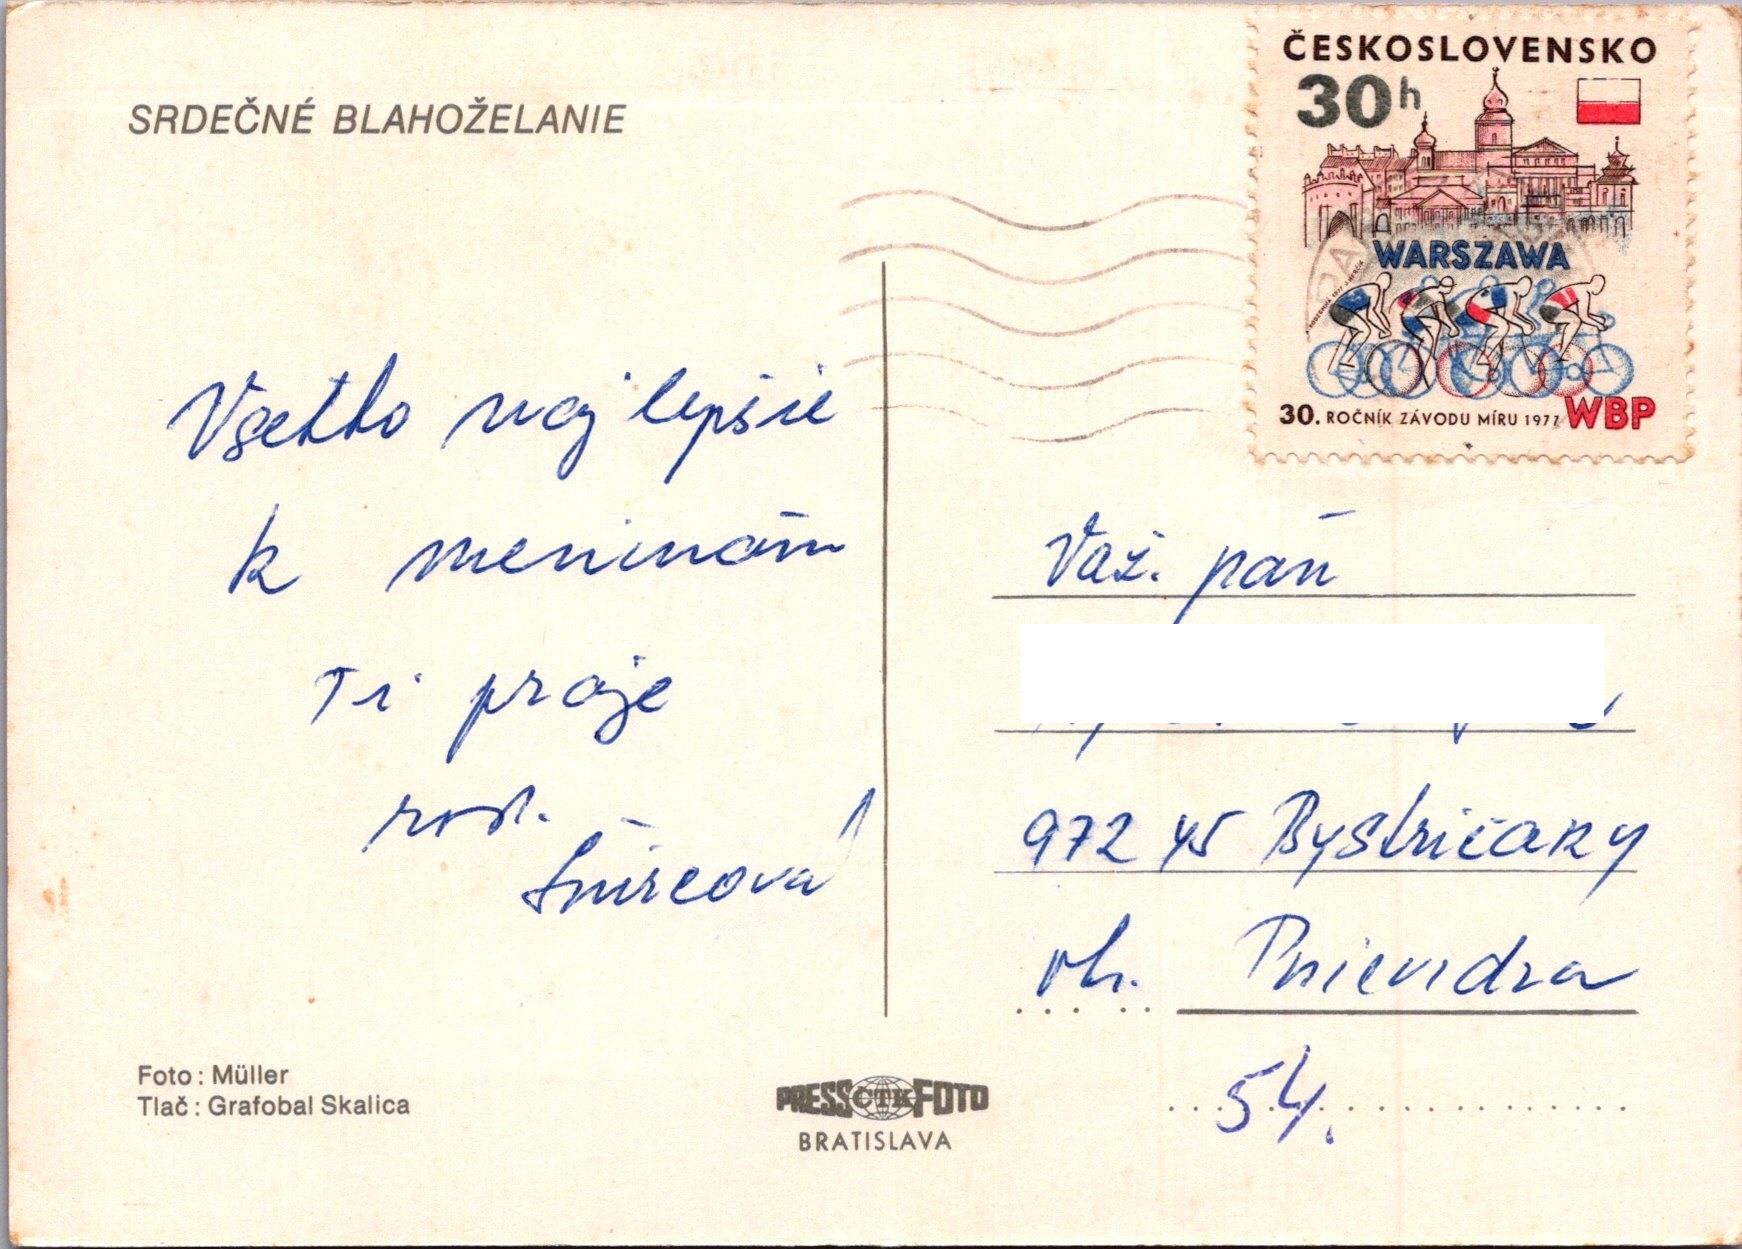 SRDEČNÉ BLAHOŽELANIE
ČESKOSLOVENSKO
30h
WARSZAWA
30. ROČNÍK ZÁVODU MÍRU 1977 WBP
Všetko najlepšie
k meninám
Ti praje
rod.
Važ. pán
972 45 Bystričany
ok. Prievidza
54.
Foto: Müller
Tlač: Grafobal Skalica
PRESS ČTK FOTO
BRATISLAVA